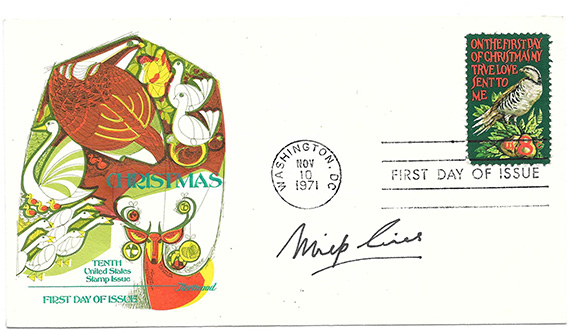 CHRISTMAS
TENTH
United States
Stamp Issue
FIRST DAY OF ISSUE
Fleetwood
WASHINGTON, DC
NOV
10
1971
FIRST DAY OF ISSUE
ON THE FIRST DAY
OF CHRISTMAS MY
TRUE LOVE
SENT TO
ME
Miep Gies